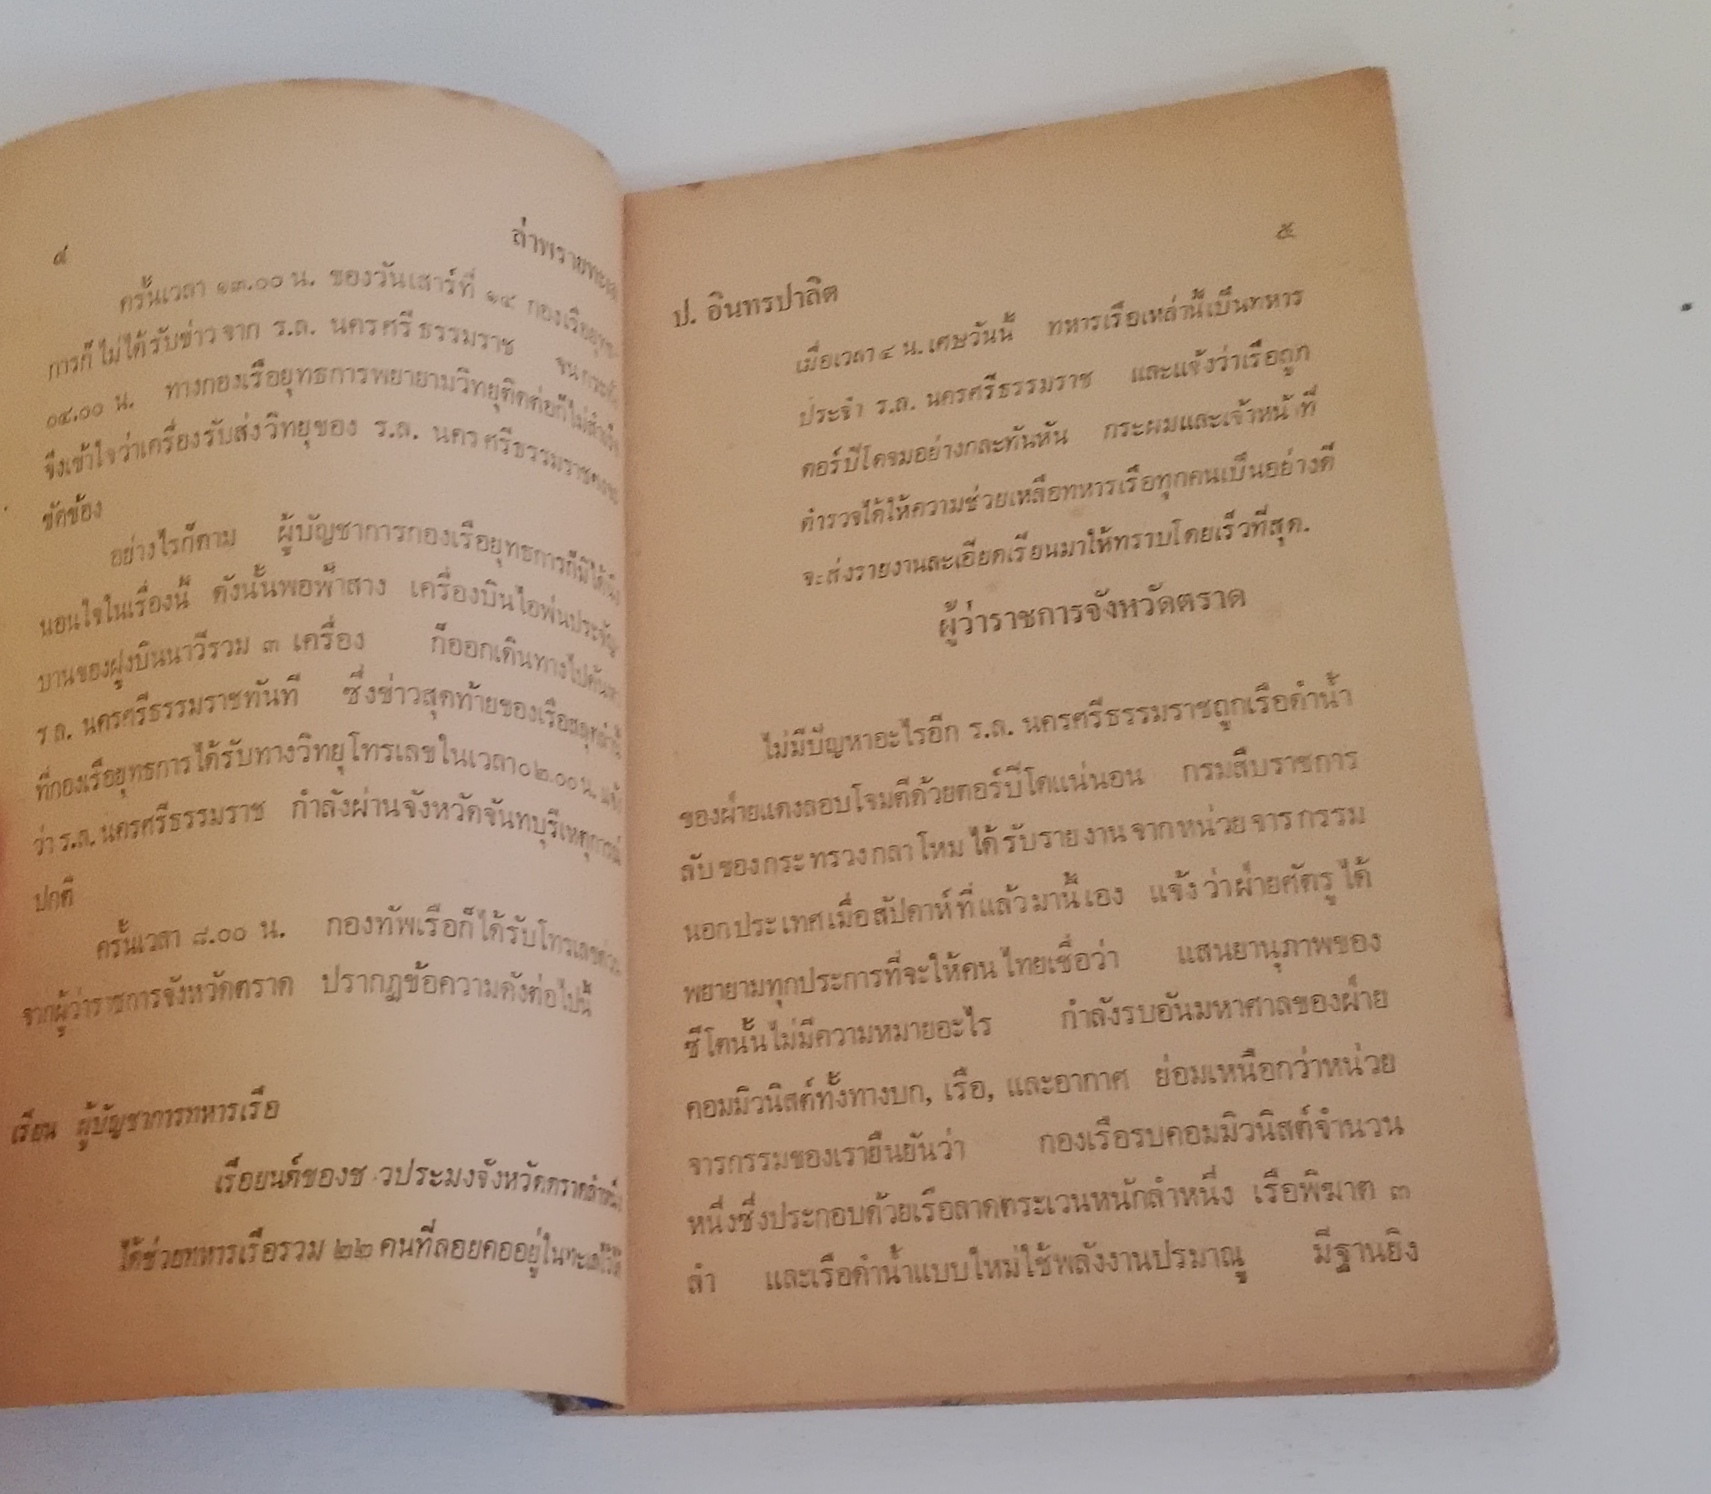 ๔
ล่าพรายทะเล
ครั้นเวลา ๑๓.๐๐ น. ของวันเสาร์ที่ ๑๔ กองเรือยุทธ
การก็ไม่ได้รับข่าวจาก ร.ล. นครศรีธรรมราช จนกระทั่ง
๐๔.๐๐ น. ทางกองเรือยุทธการพยายามวิทยุติดต่อก็ไม่สำเร็จ
จึงเข้าใจว่าเครื่องรับส่งวิทยุของ ร.ล. นครศรีธรรมราช
ขัดข้อง
อย่างไรก็ตาม ผู้บัญชาการกองเรือยุทธการก็มิได้นิ่ง
นอนใจในเรื่องนี้ ดังนั้นพอฟ้าสาง เครื่องบินไอพ่นประจัญ
บานของฝูงบินนาวีรวม ๓ เครื่อง ก็ออกเดินทางไปค้นหา
ร.ล. นครศรีธรรมราชทันที ซึ่งข่าวสุดท้ายของเรือ
ที่กองเรือยุทธการได้รับทางวิทยุโทรเลขในเวลา ๐๒.๐๐ น. แจ้ง
ว่า ร.ล. นครศรีธรรมราช กำลังผ่านจังหวัดจันทบุรีเหตุการณ์
ปกติ
ครั้นเวลา ๘.๐๐ น. กองทัพเรือก็ได้รับโทรเลขด่วน
จากผู้ว่าราชการจังหวัดตราด ปรากฎข้อความดังต่อไปนี้
เรียน ผู้บัญชาการทหารเรือ
เรือยนต์ของช วประมงจังหวัดตราดลำหนึ่ง
ได้ช่วยทหารเรือรวม ๒๒ คนที่ลอยคออยู่ในทะเลไว้ได้
๕
ป. อินทรปาลิต
เมื่อเวลา ๔ น. เศษวันนี้ ทหารเรือเหล่านี้เป็นทหาร
ประจำ ร.ล. นครศรีธรรมราช และแจ้งว่าเรือถูก
ตอร์ปีโดจมอย่างกละทันหัน กระผมและเจ้าหน้าที่
ตำรวจได้ให้ความช่วยเหลือทหารเรือทุกคนเป็นอย่างดี
จะส่งรายงานละเอียดเรียนมาให้ทราบโดยเร็วที่สุด.
ผู้ว่าราชการจังหวัดตราด
ไม่มีปัญหาอะไรอีก ร.ล. นครศรีธรรมราชถูกเรือดำน้ำ
ของฝ่ายแดงลอบโจมตีด้วยตอร์ปีโดแน่นอน กรมสืบราชการ
ลับของกระทรวงกลาโหมได้รับรายงานจากหน่วยจารกรรม
นอกประเทศเมื่อสัปดาห์ที่แล้วมานี้เอง แจ้งว่าฝ่ายศัตรูได้
พยายามทุกประการที่จะให้คนไทยเชื่อว่า แสนยานุภาพของ
ซีโตนั้นไม่มีความหมายอะไร กำลังรบอันมหาศาลของฝ่าย
คอมมิวนิสต์ทั้งทางบก, เรือ, และอากาศ ย่อมเหนือกว่าหน่วย
จารกรรมของเรายืนยันว่า กองเรือรบคอมมิวนิสต์จำนวน
หนึ่งซึ่งประกอบด้วยเรือลาดตระเวนหนักลำหนึ่ง เรือพิฆาต ๓
ลำ และเรือดำน้ำแบบใหม่ใช้พลังงานปรมาณู มีฐานยิง